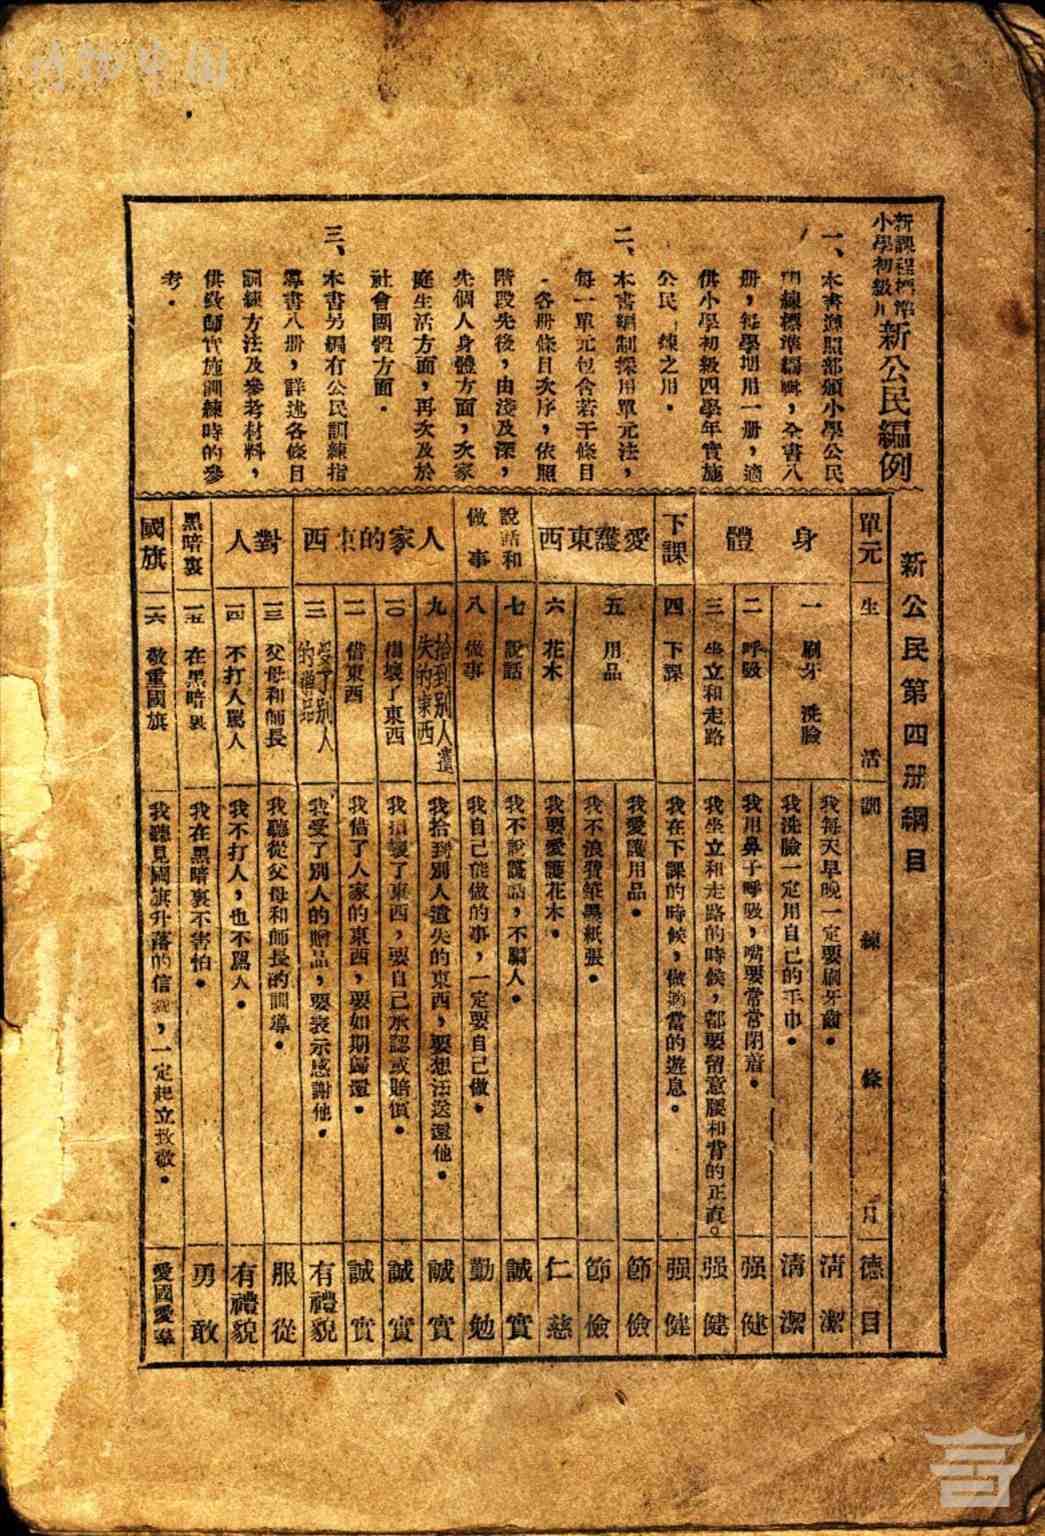 新課程標準
小學初級用
新公民編例
一、本書遵照部頒小學公民
訓練標準編輯，全書八
册，每學期用一册，適
供小學初級四學年實施
公民訓練之用。
二、本書編制採用單元法，
每一單元包含若干條目
，各册條目次序，依照
階段先後，由淺及深，
先個人身體方面，次家
庭生活方面，再次及於
社會團體方面。
三、本書另編有公民訓練指
導書八册，詳述各條目
訓練方法及參考材料，
供教師實施訓練時的參
考。
新公民第四册綱目
單元 生活 訓練條目 德目
身體 一 刷牙 洗臉 我每天早晚一定要刷牙齒。 清潔
我洗臉一定用自己的手巾。 清潔
二 呼吸 我用鼻子呼吸，嘴要常常閉着。 强健
三 坐立和走路 我坐立和走路的時候，都要留意腰和背的正直。 强健
下課 四 下課 我在下課的時候，做適當的遊息。 强健
愛護東西 五 用品 我愛護用品。 節儉
我不浪費筆墨紙張。 節儉
六 花木 我要愛護花木。 仁慈
說話和做事 七 說話 我不說謊話，不騙人。 誠實
八 做事 我自己能做的事，一定要自己做。 勤勉
人家的東西 九 拾到别人遺失的東西 我拾到別人遺失的東西，要想法送還他。 誠實
一〇 損壞了東西 我損壞了東西，要自己承認或賠償。 誠實
一一 借東西 我借了人家的東西，要如期歸還。 誠實
一二 受了别人的贈品 我受了別人的贈品，要表示感謝他。 有禮貌
對人 一三 父母和師長 我聽從父母和師長的訓導。 服從
一四 不打人駡人 我不打人，也不駡人。 有禮貌
黑暗裏 一五 在黑暗裏 我在黑暗裏不害怕。 勇敢
國旗 一六 敬重國旗 我聽見國旗升落的信號，一定起立致敬。 愛國愛羣